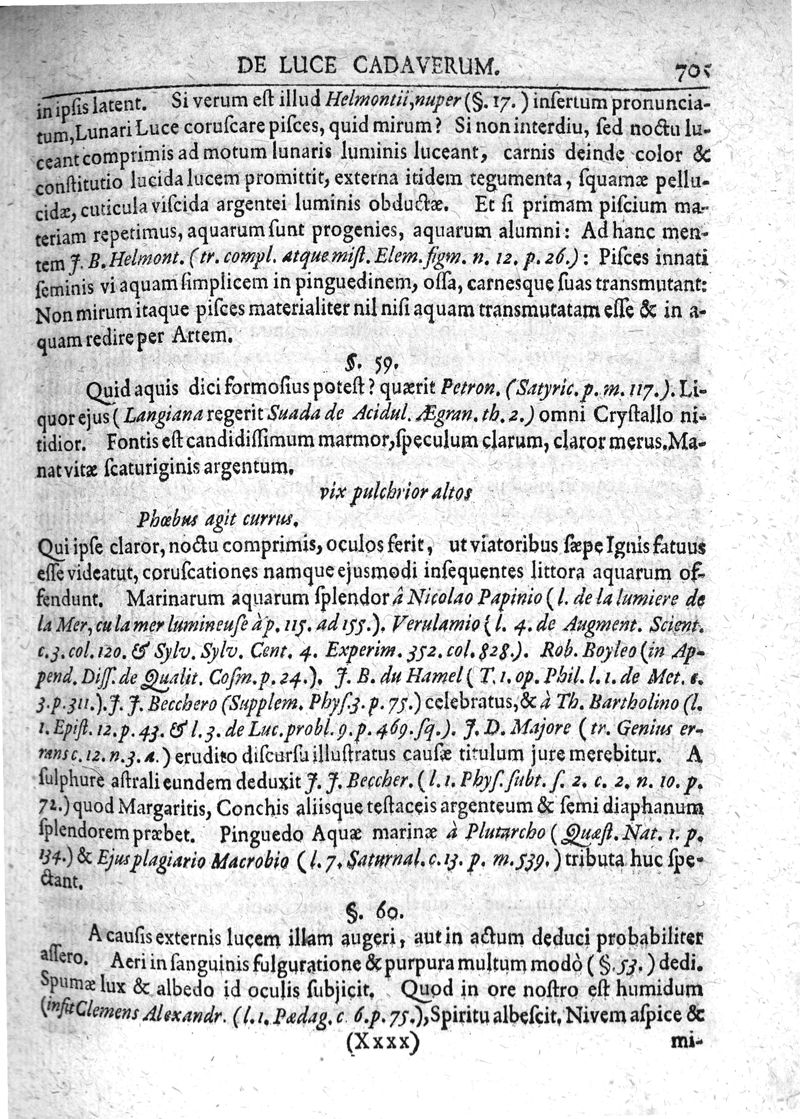 DE LUCE CADAVERUM. 705
in ipſis latent. Si verum eſt illud Helmontii, nuper (§. 17.) inſertum pronuncia-
tum, Lunari Luce coruſcare piſces, quid mirum? Si non interdiu, ſed noctu lu-
ceant comprimis ad motum lunaris luminis luceant, carnis deinde color &
conſtitutio lucida lucem promittit, externa itidem tegumenta, ſquamæ pellu-
cidæ, cuticula viſcida argentei luminis obductæ. Et ſi primam piſcium ma-
teriam repetimus, aquarum ſunt progenies, aquarum alumni: Ad hanc men-
tem J. B. Helmont. (tr. compl. atque miſt. Elem. figm. n. 12. p. 26.): Piſces innati
ſeminis vi aquam ſimplicem in pinguedinem, oſſa, carnesque ſuas transmutant:
Non mirum itaque piſces materialiter nil niſi aquam transmutatam eſſe & in a-
quam redire per Artem.
§. 59.
Quid aquis dici formoſius poteſt? quærit Petron. (Satyric. p. m. 117.). Li-
quor ejus (Langiana regerit Suada de Acidul. Ægran. th. 2.) omni Cryſtallo ni-
tidior. Fontis eſt candidiſſimum marmor, ſpeculum clarum, claror merus. Ma-
nat vitæ ſcaturiginis argentum.
vix pulchrior altos
Phœbus agit currus.
Qui ipſe claror, noctu comprimis, oculos ferit, ut viatoribus ſæpe Ignis fatuus
eſſe videatut, coruſcationes namque ejusmodi inſequentes littora aquarum of-
fendunt. Marinarum aquarum ſplendor â Nicolao Papinio (l. de la lumiere de
la Mer, cu la mer lumineuſe à p. 115. ad 155.). Verulamio (l. 4. de Augment. Scient.
c. 3. col. 120. & Sylv. Sylv. Cent. 4. Experim. 352. col. 828.). Rob. Boyleo (in Ap-
pend. Diſſ. de Qualit. Coſm. p. 24.). J. B. du Hamel (T. 1. op. Phil. l. 1. de Met. c.
3. p. 311.). J. J. Becchero (Supplem. Phyſ. 3. p. 75.) celebratus, & à Th. Bartholino (l.
1. Epiſt. 12. p. 43. & l. 3. de Luc. probl. 9. p. 469. ſq.). J. D. Majore (tr. Genius er-
rans c. 12. n. 3. a.) erudito diſcurſu illuſtratus cauſæ titulum jure merebitur. A
ſulphure aſtrali eundem deduxit J. J. Beccher. (l. 1. Phyſ. ſubt. ſ. 2. c. 2. n. 10. p.
72.) quod Margaritis, Conchis aliisque teſtaceis argenteum & ſemi diaphanum
ſplendorem præbet. Pinguedo Aquæ marinæ à Plutarcho (Quæſt. Nat. 1. p.
134.) & Ejus plagiario Macrobio (l. 7. Saturnal. c. 13. p. m. 539.) tributa huc ſpe-
ctant.
§. 60.
A cauſis externis lucem illam augeri, aut in actum deduci probabiliter
aſſero. Aeri in ſanguinis fulguratione & purpura multum modò (§. 53.) dedi.
Spumæ lux & albedo id oculis ſubjicit. Quod in ore noſtro eſt humidum
(inſit Clemens Alexandr. (l. 1. Pædag. c 6. p. 75.), Spiritu albeſcit, Nivem aſpice &
(Xxxx) mi-